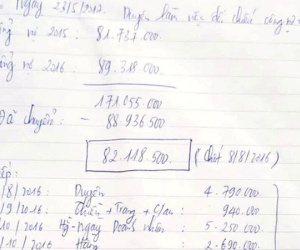 Ngày 23/5/2017. Duyên làm việc đối chiếu công nợ
nợ 2015: 81.737.000.
nợ 2016: 89.318.000
171.055.000
Đã chuyển: - 88.936.500
82.118.500 (Chốt 8/8/2016)
/8/2016: Duyên 4.790.000.
/9/2016: + Trang + C/an: 940.000
10/2016: Mỹ - Ngày Doanh nhân: 5.250.000
/10/2016: Hằng 2.690.000